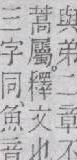 與弟一章不
蒿屬釋文也
三字同魚音